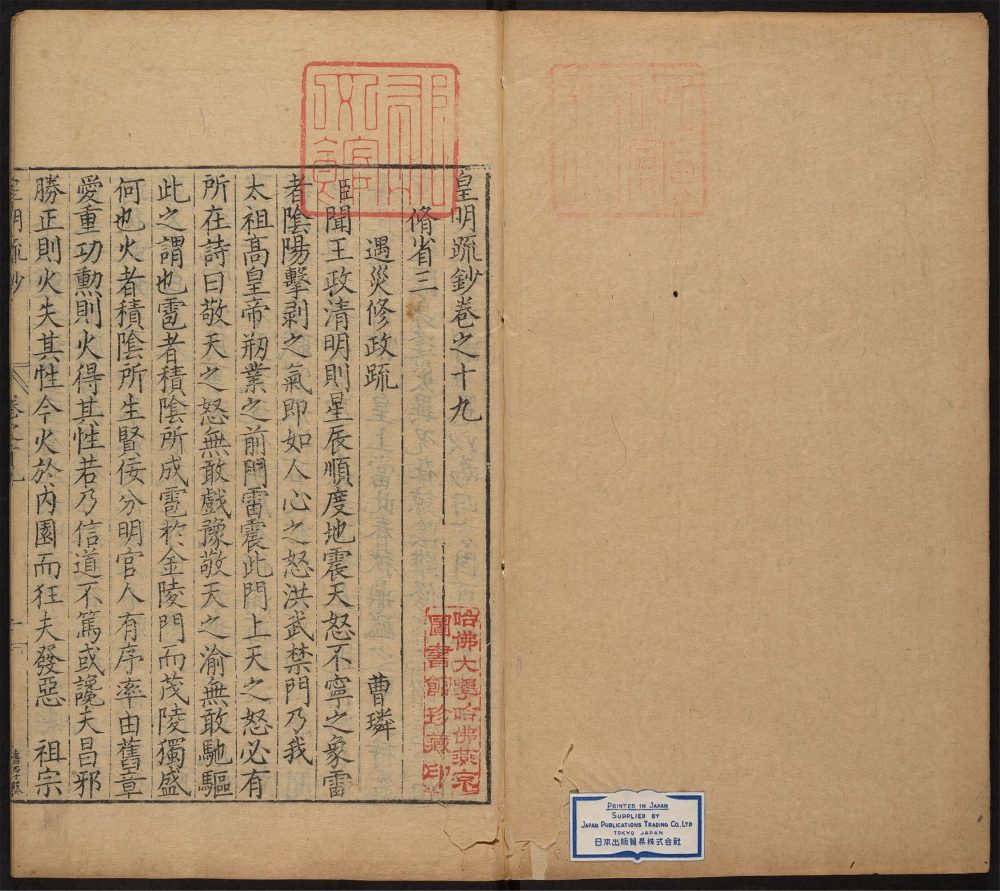 皇明疏鈔卷之十九
脩省三
遇災修政疏
曹璘
臣聞王政清明則星辰順度地震天怒不寧之象雷
者陰陽擊剥之氣即如人心之怒洪武禁門乃我
太祖高皇帝剏業之前門雷震此門上天之怒必有
所在詩曰敬天之怒無敢戲豫敬天之渝無敢馳驅
此之謂也雹者積陰所成雹於金陵門而茂陵獨盛
何也火者積陰所生賢佞分明官人有序率由舊章
愛重功勲則火得其性若乃信道不篤或讒夫昌邪
勝正則火失其性今火於内園而狂夫發惡 祖宗
皇明疏鈔 卷之十九
哈佛大學哈佛燕京
圖書館珍藏印
PRINTED IN JAPAN
SUPPLIED BY
JAPAN PUBLICATIONS TRADING CO., LTD
TOKYO JAPAN
日本出版貿易株式会社